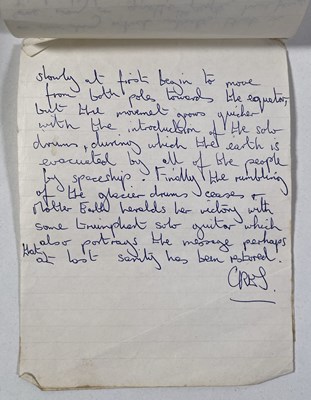 slowly at first begin to move
from both poles towards the equator,
but the movemet grows quicker
with the introduction of the solo
drums, during which the earth is
evacuated by all of the people
by spaceship. Finally the rumbling
of the glacier drums ceases &
Mother Earth heralds her victory with
some triumphant solo guitar which
also portrays the message perhaps
that at last sanity has been restored.